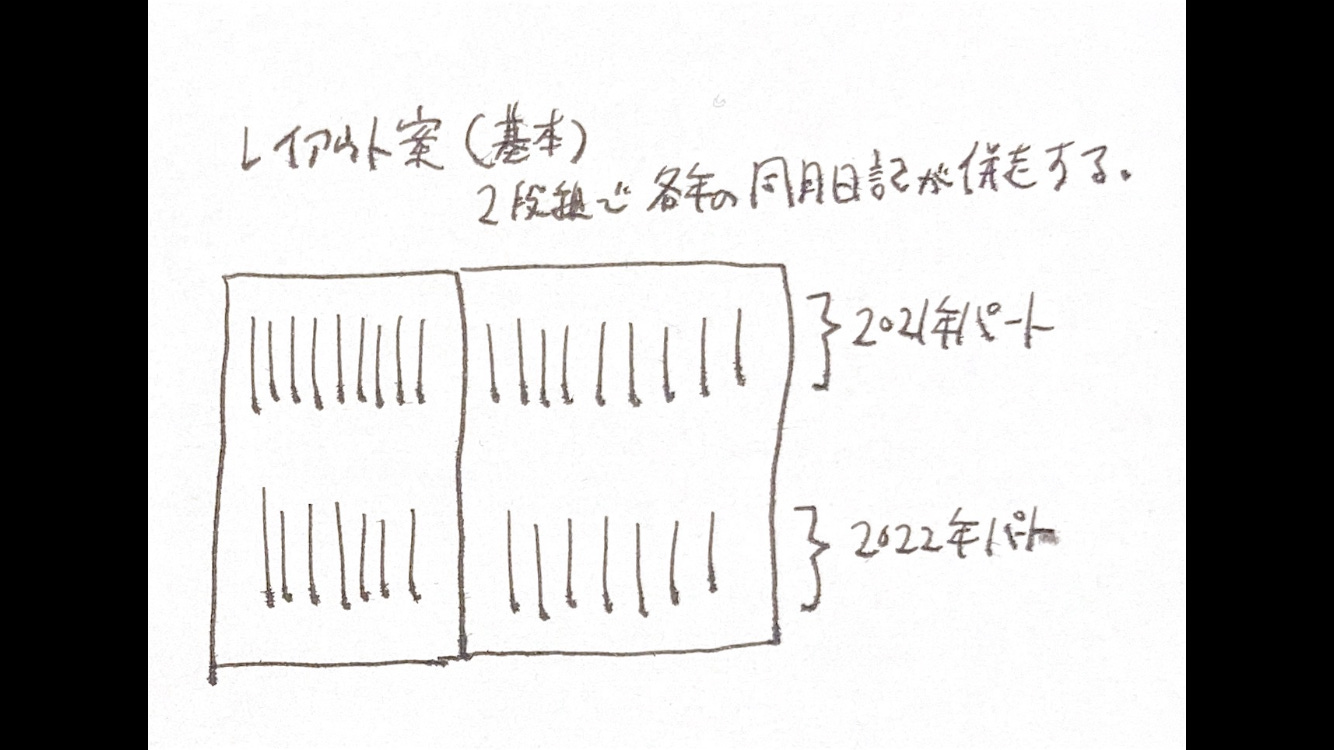 レイアウト案(基本)
2段組で各年の同月日記が併走する。
2021年パート
2022年パート